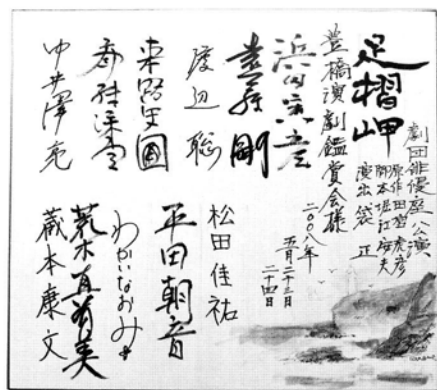 劇団俳優座公演
原作 田宮虎彦
脚本 堀江安夫
演出 袋 正
足摺岬
豊橋演劇鑑賞会様
二〇〇八年
五月二十三日
二十四日
浜田寅彦
遠藤剛
渡辺 聡
斉藤深雪
中井澤亮
松田佳祐
平田朝音
わかいなおみ
荒木真有美
蔵本康文